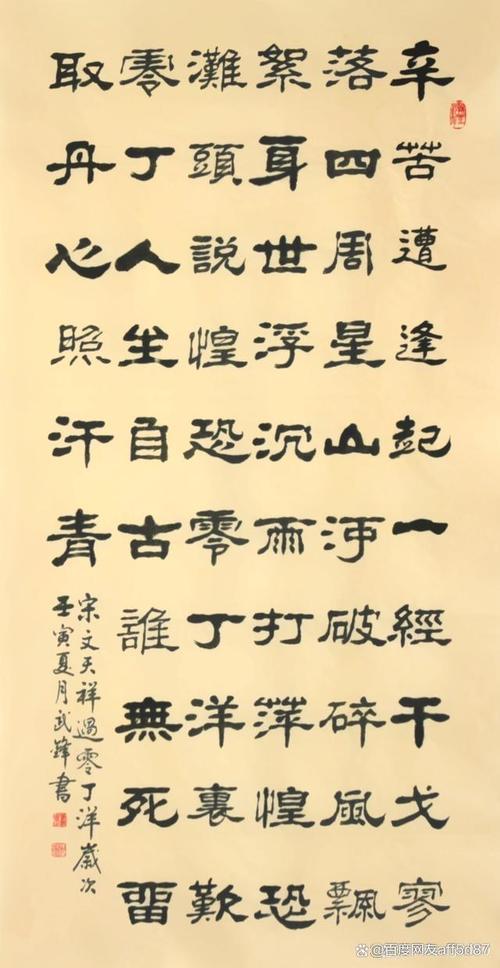 辛苦遭逢起一經干戈寥
落四周星山河破碎風飄
絮身世浮沉雨打萍惶恐
灘頭說惶恐零丁洋裏歎
零丁人生自古誰無死留
取丹心照汗青
宋文天祥過零丁洋歲次
壬寅夏月武鋒書
百度网友aff5d87